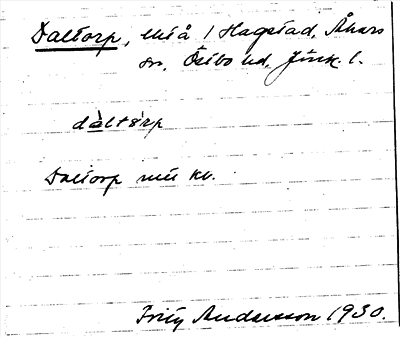 Daltorp, utiå / Hagstad, Åkers
sn, Östbo hd, Jönk. l.
dàltòrp
Daltorp mii kv.
Fritz Andersson 1930.